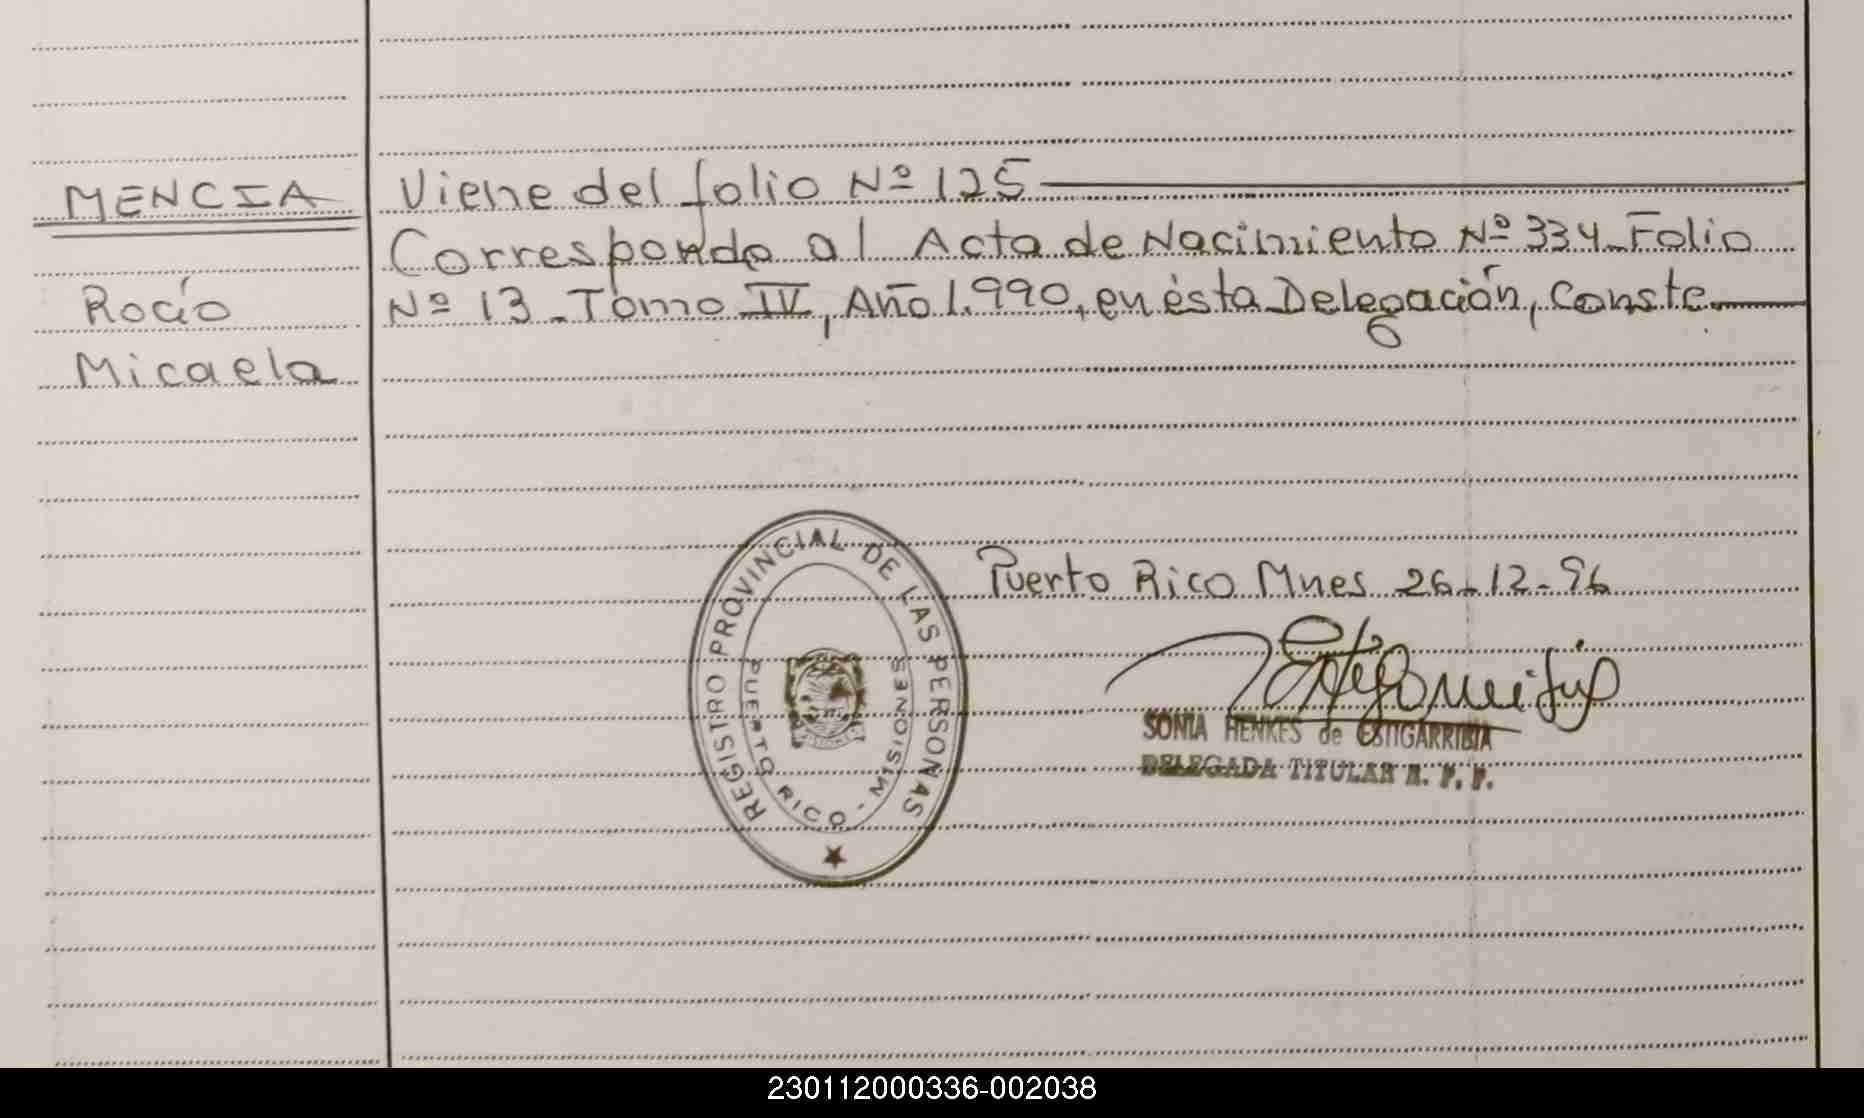 MENCIA
Rocío
Micaela
Viene del folio Nº 125
Corresponde al Acta de Nacimiento Nº 334 - Folio
Nº 13 - Tomo IV, Año 1.990, en ésta Delegación, Conste.
REGISTRO PROVINCIAL DE LAS PERSONAS
PUERTO RICO - MISIONES
Puerto Rico Mnes 26-12-96
SONIA HENKES de ESTIGARRIBIA
DELEGADA TITULAR R. P. P.
230112000336-002038